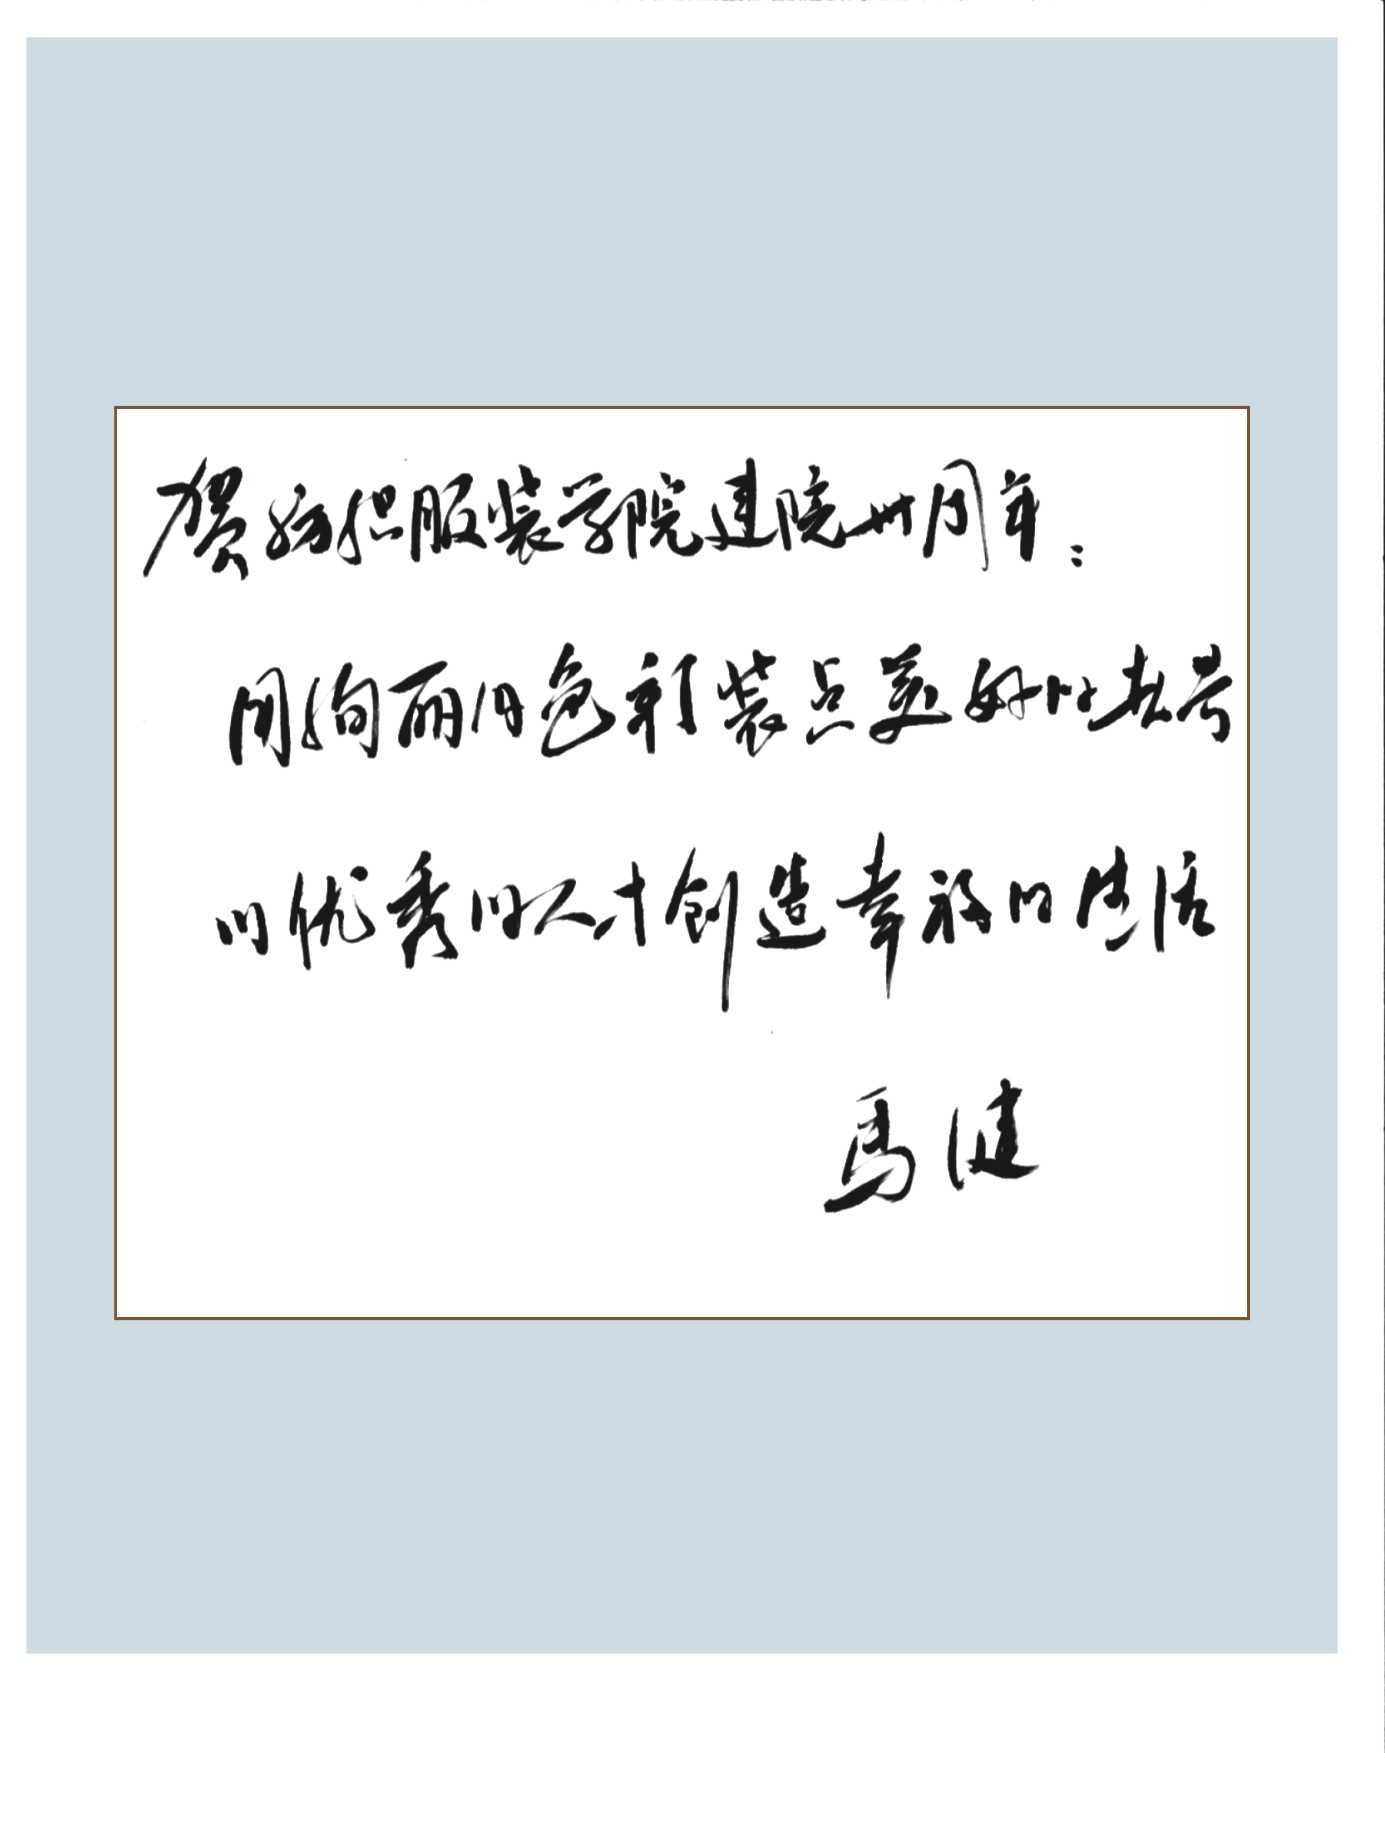 贺纺织服装学院建院卅周年：
用绚丽的色彩装点美好的者
以优秀的人才创造幸福的生活
马健